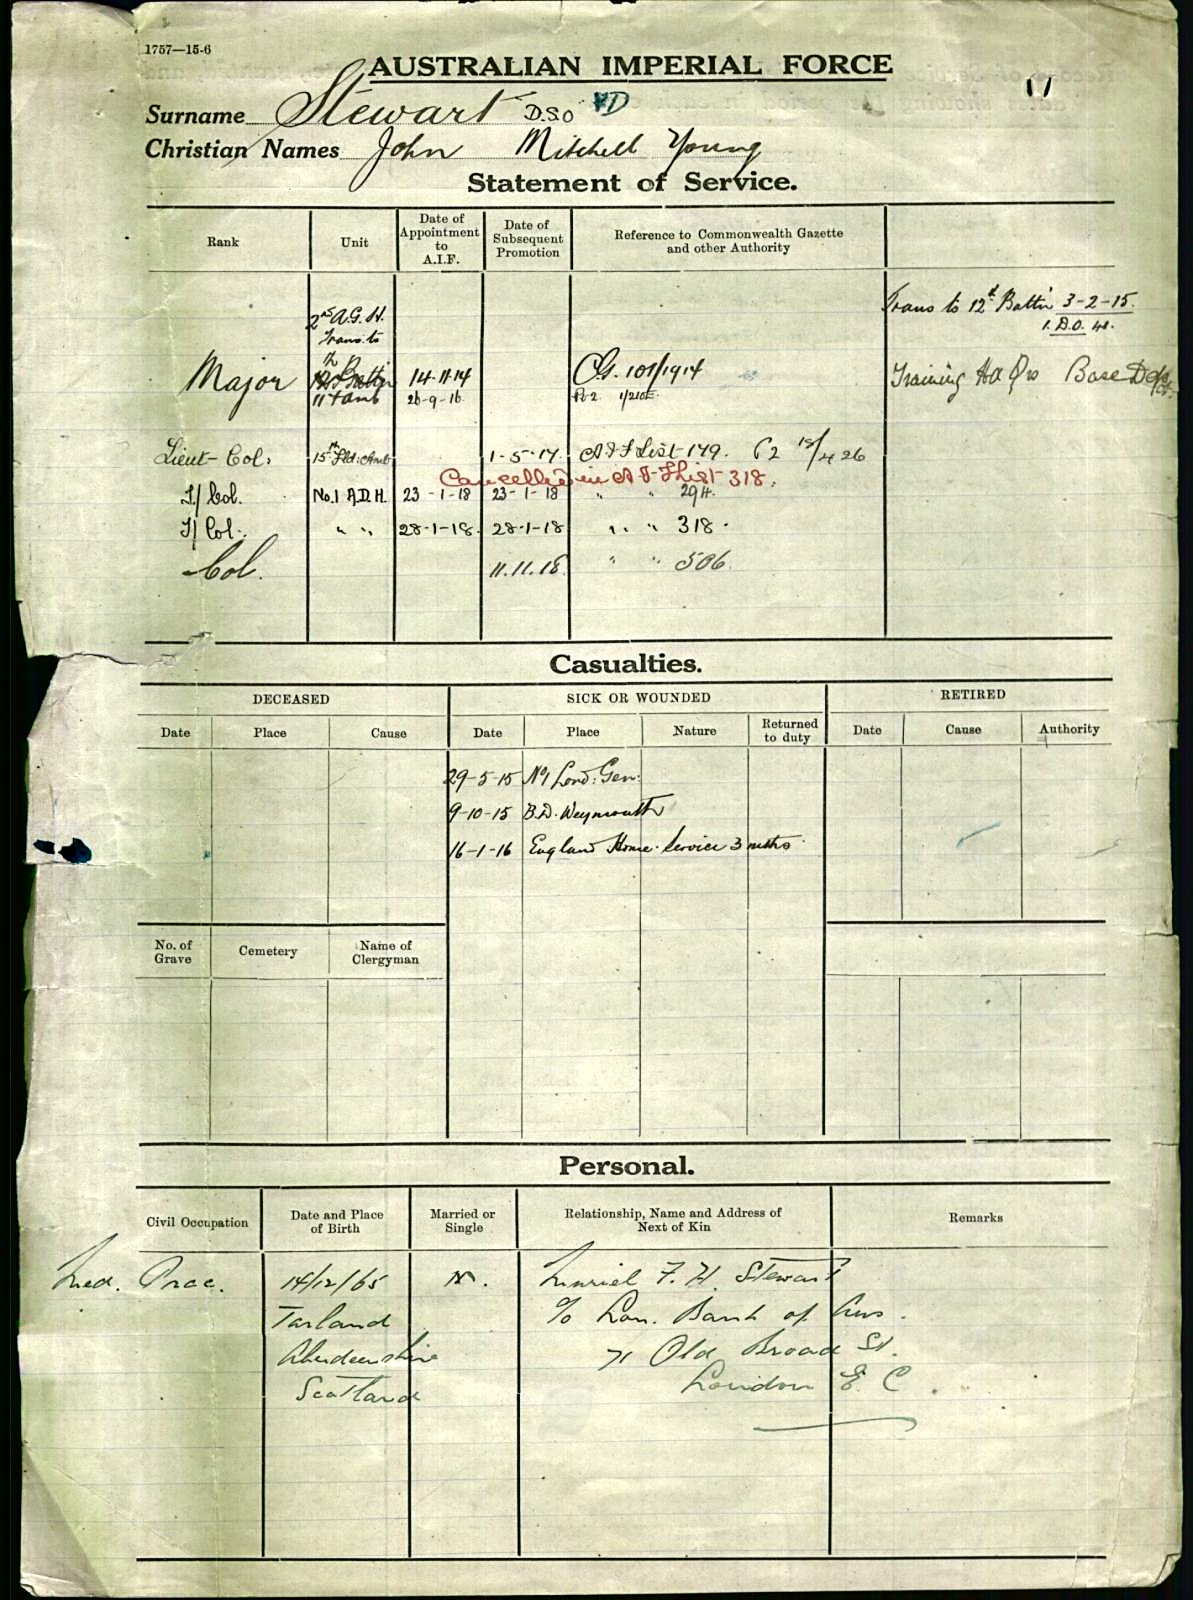 1757—15-6
AUSTRALIAN IMPERIAL FORCE
11
Surname Stewart D.S.O VD
Christian Names John Mitchell Young
Statement of Service.
Rank
Unit
Date of Appointment to A.I.F.
Date of Subsequent Promotion
Reference to Commonwealth Gazette and other Authority
2nd A.G.H. Trans to 12th Battn 3-2-15.
Trans. to 1. D.O. 41.
Major 12th Battn 14.11.14 C.G. 101/1914 Training Hd Qrs Base Depot.
11 F amb 26-9-16
Lieut-Col. 15th Fld. Amb 1-5-17. A I F List 179. P2 18/4 26
Cancelled in A I F List 318.
T/Col. No.1 A.D.H. 23-1-18 23-1-18 " " 294.
T/Col. " " 28-1-18. 28-1-18 " " 318.
Col. 11.11.18 " " 506.
Casualties.
DECEASED SICK OR WOUNDED RETIRED
Date Place Cause Date Place Nature Returned to duty Date Cause Authority
29-5-15 No 1 Lond: Gen.
9-10-15 B.D. Weymouth
16-1-16 England Home Service 3 mths.
No. of Grave Cemetery Name of Clergyman
Personal.
Civil Occupation
Date and Place of Birth
Married or Single
Relationship, Name and Address of Next of Kin
Remarks
Med. Prac. 14/12/65 M. Muriel F. H. Stewart
Tarland c/o Lon. Bank of Aus.
Aberdeenshire 71 Old Broad St.
Scotland London E. C.